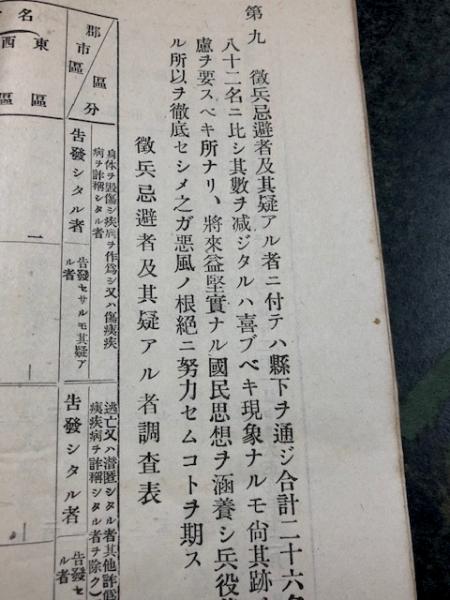 第九　徵兵忌避者及其疑アル者ニ付テハ縣下ヲ通ジ合計二十六名
八十二名ニ比シ其數ヲ減ジタルハ喜ブベキ現象ナルモ尙其跡
慮ヲ要スベキ所ナリ、將來益堅實ナル國民思想ヲ涵養シ兵役
ル所以ヲ徹底セシメ之ガ惡風ノ根絕ニ努力セムコトヲ期ス
徵兵忌避者及其疑アル者調査表
區分
郡市區
身体ヲ毀傷シ疾病ヲ作爲シ又ハ傷痍疾
病ヲ詐稱シタル者
告發シタル者
告發セサルモ其疑ア
ル者
逃亡又ハ潜匿シタル者其他詐僞
痍疾病ヲ詐稱シタル者ヲ除ク)
告發シタル者
告發セ
ル者
名
東區
一
西區